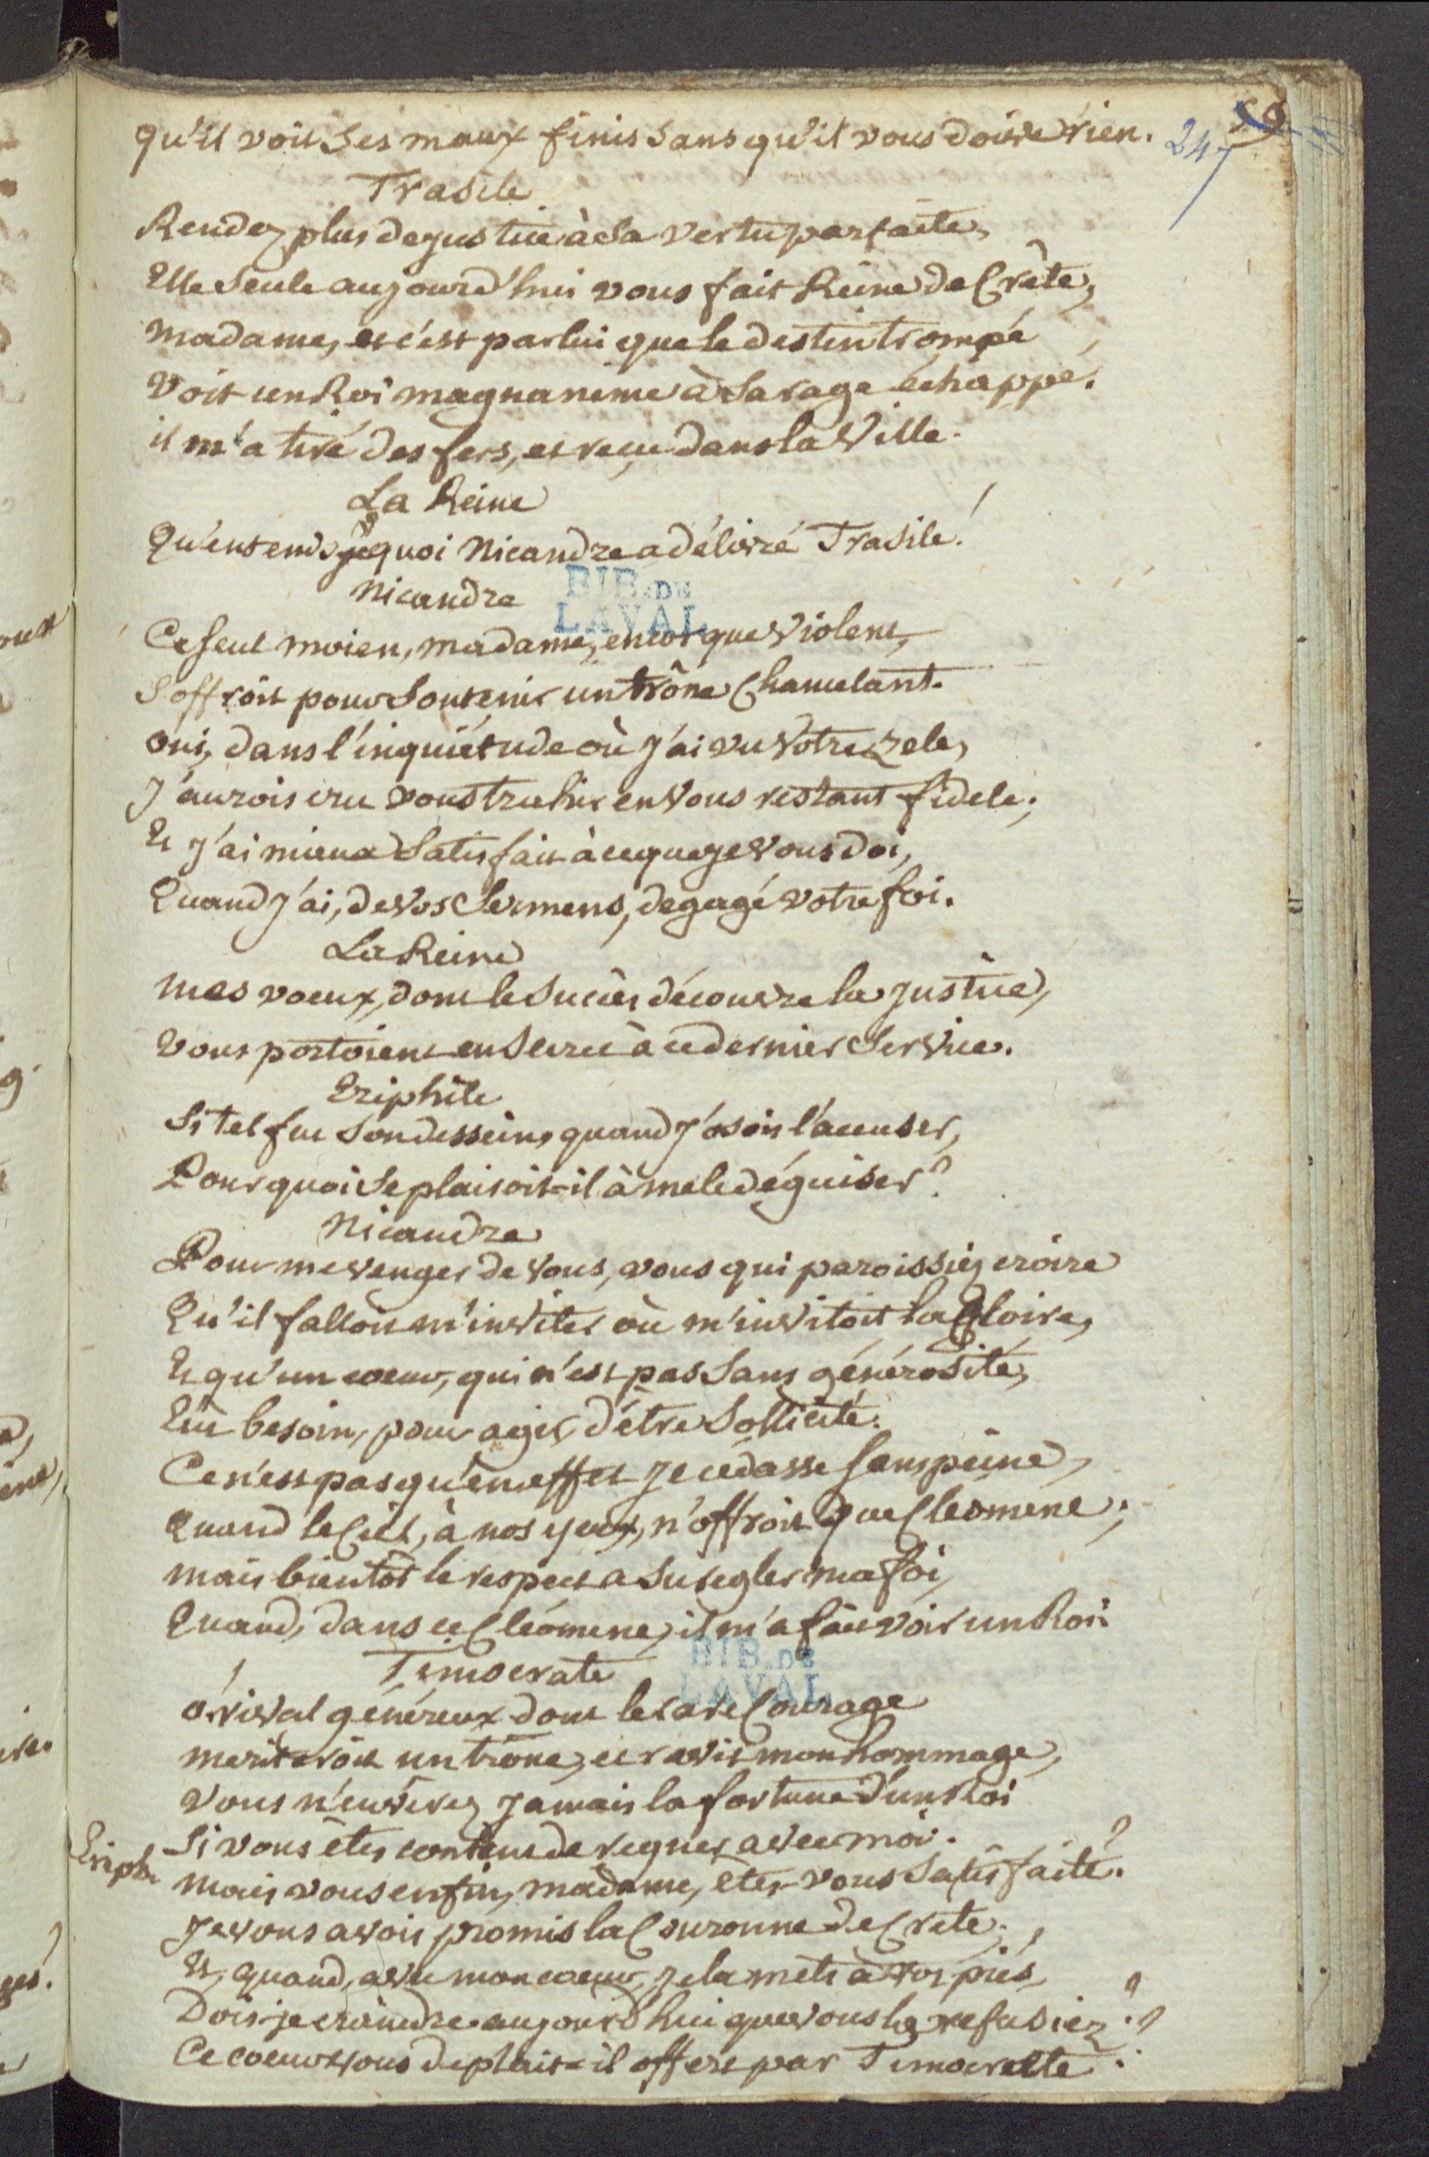 qu'il voit ses maux finis sans qu'il vous doive rien.
247
Trasile
Rendez plus de justice à sa vertu parfaite,
Elle seule aujourd'hui vous fait Reine de Crète,
madame, et c'est par lui que le destin trompé
Voit un Roi magnanime à sa rage échappé.
il m'a tiré des fers, et reçu dans la Ville.
La Reine
Qu'entends je? quoi Nicandre a délivré Trasile!
Nicandre
BIB. DE
LAVAL
Ce seul moien, madame, encor que violent,
S'offroit pour soutenir un trône Chancelant.
oui, dans l'inquiétude où j'ai vu votre zele,
J'aurois cru vous trahir en vous restant fidele;
Et j'ai mieux satisfait à ce que je vous doi,
Quand j'ai, de vos sermens, degagé votre foi.
La Reine
mes voeux, dont le succès découvre la justice,
Vous portoient en secret à ce dernier service.
Eriphile
Si tel fut son dessein, quand j'osois l'accuser,
Pourquoi se plaisoit-il à me le déguiser?
Nicandre
Pour me venger de vous, vous qui paroissiez croire
Qu'il falloit m'inviter où m'invitoit la Gloire,
Et qu'un coeur, qui n'est pas sans générosité,
Eût besoin, pour agir, d'être sollicité.
Ce n'est pas qu'en effet je cédasse sans peine,
Quand le Ciel, à nos yeux, n'offroit que Cleomene;
mais bientôt le respect a su regler ma foi,
Quand, dans ce Cléomene, il m'a fait voir un Roi.
Timocrate
BIB. DE
LAVAL
ô! rival généreux dont le rare Courage
meriteroit un trône, et ravit mon hommage,
Vous n'envierez jamais la fortune d'un Roi
Si vous êtes content de regner avec moi.
Eriph.
mais vous enfin, madame, etes-vous satisfaite?
Je vous avois promis la Couronne de Crete;
Et, quand, avec mon coeur, je la mets à vos piés,
Dois-je craindre aujourd'hui que vous la refusiez?
Ce coeur vous deplait-il offert par Timocrate?